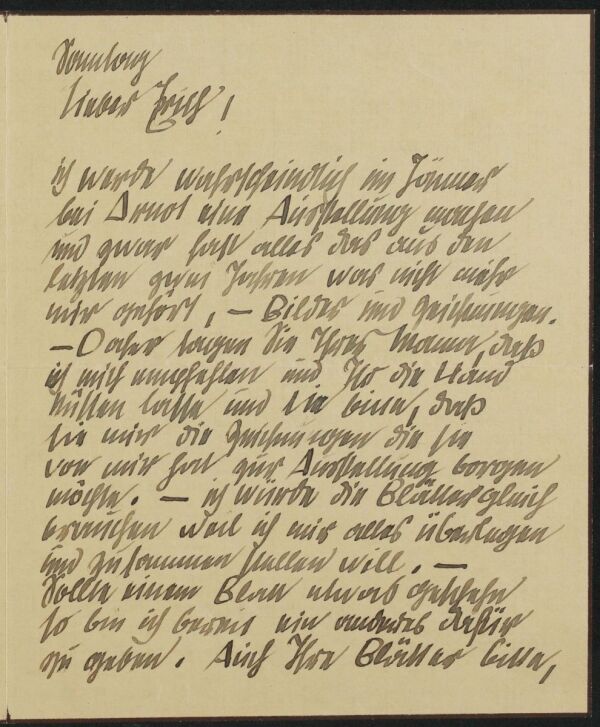 Sonntag
Lieber Erich!
ich werde wahrscheindlich im Jänner
bei Arnot eine Ausstellung machen
und zwar fast alles das aus den
letzten zwei Jahren was nicht mehr
mir gehört, – Bilder und Zeichnungen.
– Daher sagen Sie Ihrer Mama, daß
ich mich empfehlen und Ihr die Hand
küssen lasse und sie bitte, daß
sie mir die Zeichnungen die sie
von mir hat zur Ausstellung borgen
möchte. – ich würde die Blätter gleich
brauchen weil ich mir alles überlegen
und zusammen stellen will. –
Sollte einem Blatt etwas geschehn
so bin ich bereit ein anderes dafür
zu geben. Auch Ihre Blätter bitte,